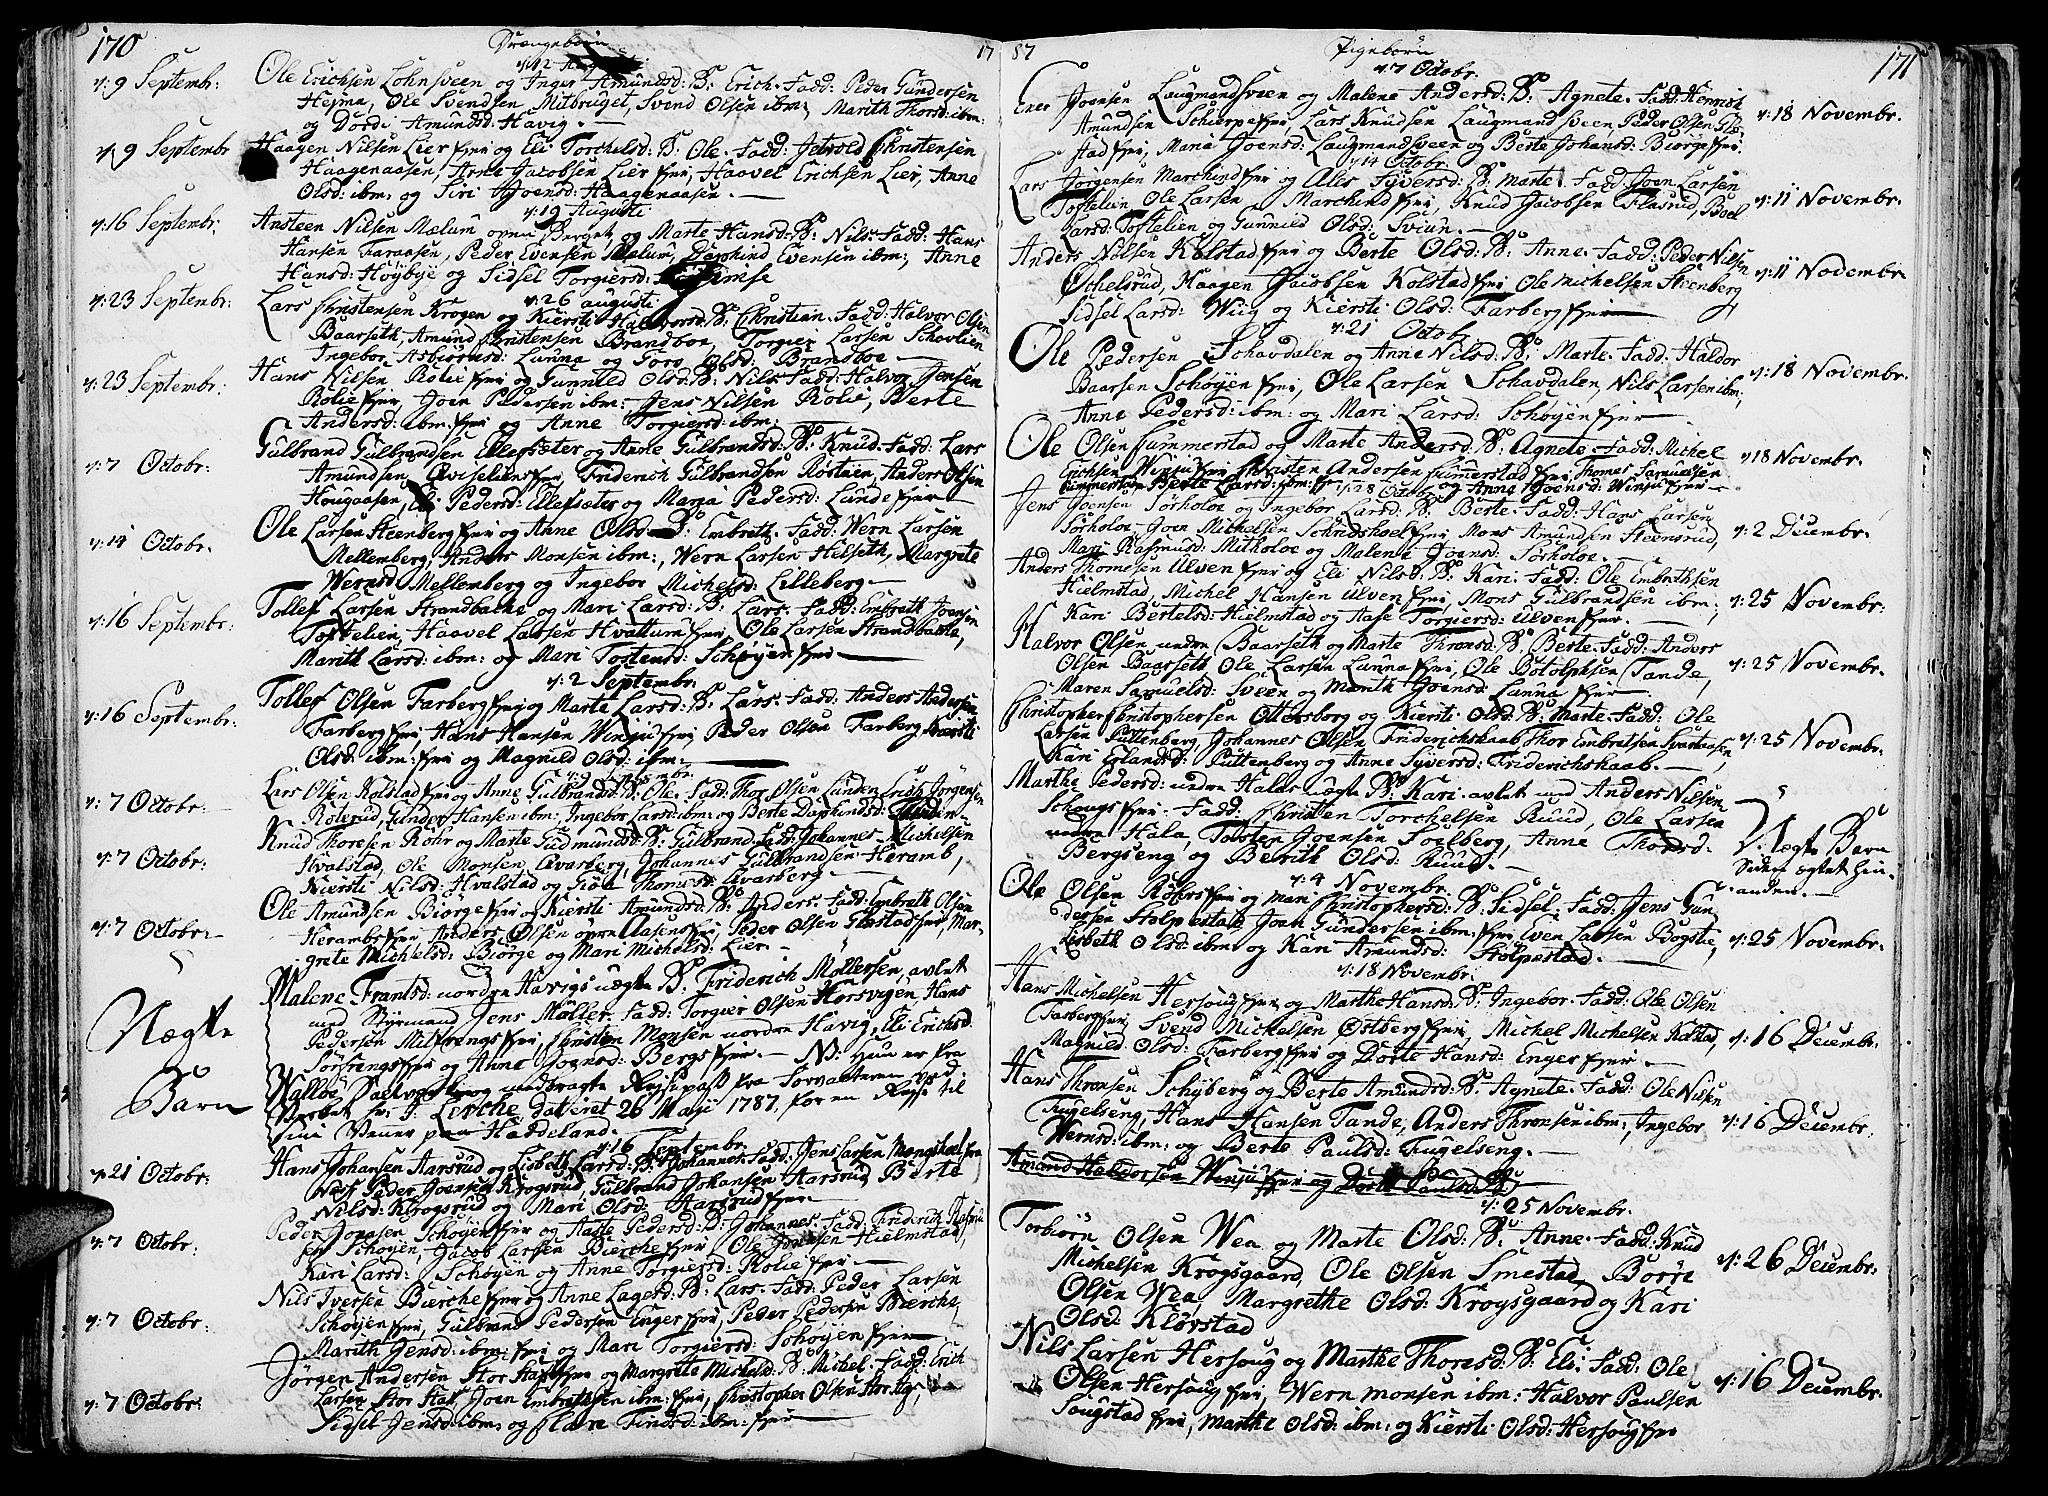 170
Drængebørn
17
d: 9 Septembr: Ole Erichsen Lohnsveen og Inger Amundsd: B: Erich. Fadd: Peder Gundersen
Hejmn, Ole Svendsen Mitbrugel, Svend Olsen ibm, Marith Thorsd: ibm:
og Dordi Amundsd: Havig.
d: 9 Septembr Haagen Nilsen Lier eje og Eli Torchelsd: B: Ole. Fadd: Christensen
Haagenaasen, Arne Jacobsen Lier eje, Haavel Erichsen Lier, Anne
Olsd: ibm: og Siri Joensd: Haagenaasen.
d: 19 Augusti
d: 16 Septembr: Ansteen Nilsen Mælum og Marte Hansd: B: Nils. Fadd: Hans
Hansen Taraasen, Peder Evensen Mælum, Daphind Evensen ibm:, Anne
Hansd: Høybye og Sidsel Torgiersd:
d: 26 augusti
d: 23 Septembr: Lars Christensen Krogen og Kiersti Halvorsd: B: Christian. Fadd: Halvor Olsen
Baarseth, Amund Christensen Brandboe, Torgier Larsen Schovlien
Ingebor Asbiørnsd: Lunna og Toro Olsd: Brandboe
d: 23 Septembr: Hans Nilsen Rolie eje og Gunnild Olsd: B: Nils. Fadd: Halvor Jensen
Rolie eje, Joen Pedersen ibm: Jens Nilsen Rolie, Berte
Andersd: ibm: eje og Anne Torgiersd: ibm:
d: 7 Octobr: Gulbrand Gulbrandsen Ellefsæter og Anne Gulbrandsd: B: Knud. Fadd: Lars
Amundsen, Friderich Gulbrandsen Rostuen, Anders Olsen
Hougaasen, Eli Pedersd: Ellefsæter og Maria Pedersd: Lunde eje
d: 14 Octobr. Ole Larsen Steenberg eje og Anne Olsd: B: Embreth. Fadd: Wern Larsen
Mellemberg, Anders Monsen ibm:, Wern Larsen Hilseth, Margrete
Wernsd: Mellemberg og Ingebor Michelsd: Lilleberg.
d: 16 Septembr: Tollef Larsen Strandbakke og Mari Larsd: B: Lars. Fadd: Embreth Joensen
Toftelien, Haavel Larsen Hvattum eje, Ole Larsen Strandbakke,
Marith Larsd: ibm: og Mari Tostensd: Schøyen eje
d: 2 Septembr:
d: 16 Septembr: Tollef Olsen Farberg eje og Marte Larsd: B: Lars. Fadd: Anders Andersen
Farberg eje, Hans Hansen Winju eje, Peder Olsen Farberg Kiersti
Olsd: ibm: eje og Magnild Olsd: ibm:
d: 7 Octobr: Lars Olsen Kolstad eje og Anne Gulbrandsd: B: Ole. Fadd: Thor Olsen Lunden Erich Jørgensen
Roterud, Gunder Hansen ibm:, Ingebor Larsd: ibm: og Berte Daphindsd:
d: 7 Octobr: Knud Thoresen Røhr og Marte Gudmundsd: B: Gulbrand. Fadd: Johannes Michelsen
Hvalstad, Ole Monsen Qvarberg, Johannes Gulbrandsen Heramb,
Kiersti Nilsd: Hvalstad og Giøa Thomesd: Qvarberg.
d: 7 Octobr: Ole Amundsen Biørge eje og Kiersti Amundsd: B: Anders. Fadd: Embreth Olsen
Heramb eje Anders Olsen øvre Aasen eje, Peder Olsen Gløstad eje, Mar-
grete Michelsd: Biørge og Mari Michelsd: Lier.
Nægte Barn
Malene Frantsd: nordre Havigs nægte B: Friderich Møllersen, avlet
med Styrmand Jens Møller. Fadd: Torgier Olsen Korsvigen, Hans
Pedersen Mitfrengs eje, Christen Monsen nordre Havig, Eli Erichsd:
Sørfrengs eje og Anne Joensd: Bergs eje. NB: Hun er fra
Walløe Saltverk og medbragte Rejsepass fra Forvalteren ved
Verket hr: J. Lerche, dateret 26 Maji 1787, for en Rejse til
sine Venner paa Haddeland.
d: 16 Septembr:
d: 21 Octobr: Hans Johansen Aarsrud og Lisbeth Larsd: B: Johannes. Fadd: Jens Larsen
Næss Peder Joensen Krogsrud, Gulbrand Johansen Aarsrud Berte
Nilsd: Krogsrud og Mari Olsd: Aarsrud eje
d: 7 Octobr: Peder Jonasen Schøyen eje og Aaste Pedersd: B: Johannes. Fadd: Friderich Rasmu
sen Schøyen, Jacob Larsen Bierche eje, Ole Jonasen Hielmstad,
Kari Larsd: Schøyen og Anne Torgiersd: Rolie eje
d: 7 Octobr: Nils Iversen Bierche eje og Anne Lagesd: B: Lars. Fadd: Peder Larsen
Schøyen eje, Gulbrand Pedersen Enger eje, Peder Pedersen Bierche
Marith Jensd: ibm: eje og Mari Torgiersd: Schøyen eje
d: 7 Octobr: Jørgen Andersen Stor Hage eje og Margrete Michelsd: B: Michel. Fadd: Erich
Larsen Stor Joen Embrethsen ibm: eje, Christopher Olsen Stor
Sidsel Jensd: ibm: og Clare Findsd: ibm: eje
87
Pigebørn
171
d: 7 Octobr.
Ener Joensen Laugmandsveen og Malene Andersd: B: Agnete. Fadd: Henrich d: 18 Novembr.
Amundsen Schierpe eje, Lars Knudsen Laugmandsveen, Peder Olsen Glø-
stad eje, Maria Joensd: Laugmandsveen og Berte Johansd: Biørge eje.
d: 14 Octobr.
Lars Jørgensen Marchind eje og Ales Syversd: B: Marte. Fadd: Joen Larsen d: 11 Novembr.
Toftelien Ole Larsen Marchind eje, Knud Jacobsen Flasrud, Boel
Larsd: Toftelien og Gunnild Olsd: Sviun.
Anders Nilsen Kolstad eje og Berte Olsd: B: Anne. Fadd: Peder Nilsen d: 11 Novembr.
Øchelsrud, Haagen Jacobsen Kolstad eje Ole Michelsen Steenberg
Sidsel Larsd: Wiig og Kiersti Olsd: Farberg eje
d: 21 Octobr.
Ole Pedersen Schavdalen og Anne Nilsd: B: Marte. Fadd: Haldor d: 18 Novembr.
Baarsen Schøyen eje, Ole Larsen Schavdalen, Nils Larsen ibm;
Anne Pedersd: ibm: og Mari Larsd: Schøyen eje
Ole Olsen Summerstad og Marte Andersd: B: Agnete. Fadd: Michel d 18 Novembr.
Erichsen Winju eje Christen Andersen Summerstad eje, Thomes Samuelsen
Summerstad Berte Larsd: ibm: og Anne Joensd: Winju eje
d: 28 Octobr.
Jens Joensen Sørholoe og Ingebor Larsd: B: Berte. Fadd: Hans Larsen d: 2 Decembr.
Sørholoe Joen Michelsen eje, Mons Amundsen Steensrud,
Mari Rasmusd: Mitholoe og Malene Joensd: Sørholoe.
Anders Thomesen Ulven eje og Eli Nilsd: B: Kari. Fadd: Ole Embrethsen d: 25 Novembr:
Hielmstad, Michel Hansen Ulven eje, Mons Gulbrandsen ibm;
Kari Bertelsd: Hielmstad og Aase Torgiersd: Ulven eje.
Halvor Olsen nedre Baarseth og Marte Thronsd: B: Berte. Fadd: Anders d: 25 Novembr.
Olsen Baarseth Ole Larsen Lunna eje, Ole Botolphsen Tande,
Maren Samuelsd: Sveen og Marith Joensd: Lunna eje.
Christopher Christophersen Ottersborg og Kiersti Olsd: B: Marte. Fadd: Ole d: 25 Novembr.
Larsen Puttenberg, Johannes Olsen Friderichskaab Thor Embretsen Svartaasen,
Kari Erlandsd: Puttenberg og Anne Syversd: Friderichskaab.
Marthe Pedersd: nedre Halas nægte B: Kari avlet med Anders Nilsen
Schougs eje. Fadd: Christen Torchelsen Ruud, Ole Larsen
nedre Hala, Tosten Joensen Soelberg, Anne Thorsd:
Bergseng og Berith Olsd: Ruud.
Nægte Barn
siden ægtet hin-
anden.
d: 4 Novembr.
Ole Olsen Røhrs eje og Mari Christophersd: B: Sidsel. Fadd: Jens Gun-
dersen Stolpestad Joen Gundersen ibm: eje Iwen Larsen Bogstie, d: 25 Novembr.
Lisbeth Olsd: ibm: og Kari Amundsd: Stolpestad.
d: 18 Novembr.
Hans Michelsen Hersoug eje og Marthe Hansd: B: Ingebor. Fadd: Ole Olsen
Farberg eje Svend Michelsen Østberg eje, Michel Michelsen d: 16 Decembr.
Magnild Olsd: Farberg eje og Dorte Hansd: Enger eje
Hans Thronsen Schyberg og Berte Amundsd: B: Agnete. Fadd: Ole Nilsen
Fugelseng, Hans Hansen Tande, Anders Thronsen ibm:, Ingebor d: 16 Decembr:
Wernsd: ibm: og Berte Paulsd: Fugelseng.
Amund Haldorsen Winju eje og Dorte Paulsd B:
d: 25 Novembr.
Torbiørn Olsen Wea og Marte Olsd: B: Anne. Fadd: Knud
Michelsen Krogsgaard, Ole Olsen Smestad, Borre d: 26 Decembr:
Olsen Wea, Margrethe Olsd: Krogsgaard og Kari
Olsd: Klørstad
Nils Larsen Hersoug og Marthe Thoresd: B: Eli. Fadd: Ole
Olsen Hersoug eje, Wern Monsen ibm: Halvor Paulsen d: 16 Decembr.
Sougstad eje, Marthe Olsd: ibm: og Kiersti Olsd: Hersoug eje